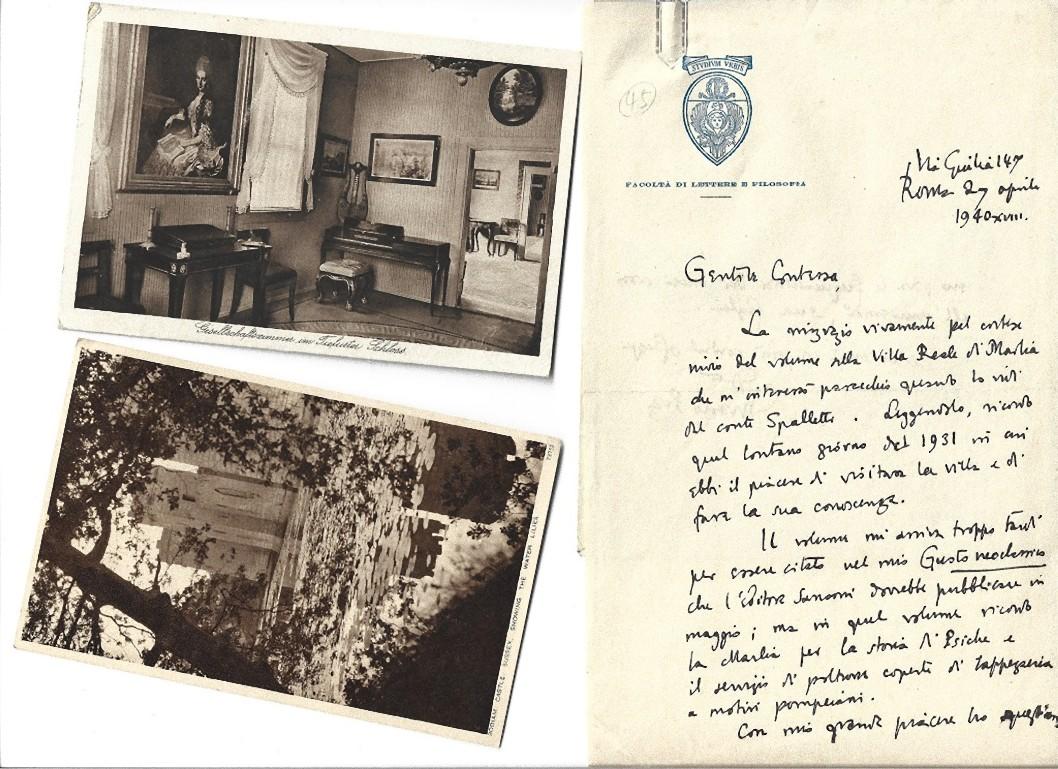 Gesellschaftszimmer im Tiefurter Schloss
BODIAM CASTLE SUSSEX SHOWING THE WATER LILIES
STVDIVM VRBIS
(45)
FACOLTÀ DI LETTERE E FILOSOFIA
Via Giulia 147
Roma 27 aprile
1940 XVIII.
Gentile Contessa,
La ringrazio vivamente pel cortese
invio del volume sulla Villa Reale di Marlia
che m'interessò parecchio quando lo vidi
dal conte Spalletti. Leggendolo, ricordo
quel lontano giorno del 1931 in cui
ebbi il piacere di visitare la villa e di
fare la sua conoscenza.
Il volume mi arriva troppo tardi
per essere citato nel mio Gusto neoclassico
che l'Editore Sansoni dovrebbe pubblicare in
maggio; ma in quel volume ricordo
la Marlia per la storia di Psiche e
il servizio di poltrone coperte di tappezzeria
a motivi pompeiani.
Con mio grande piacere ho